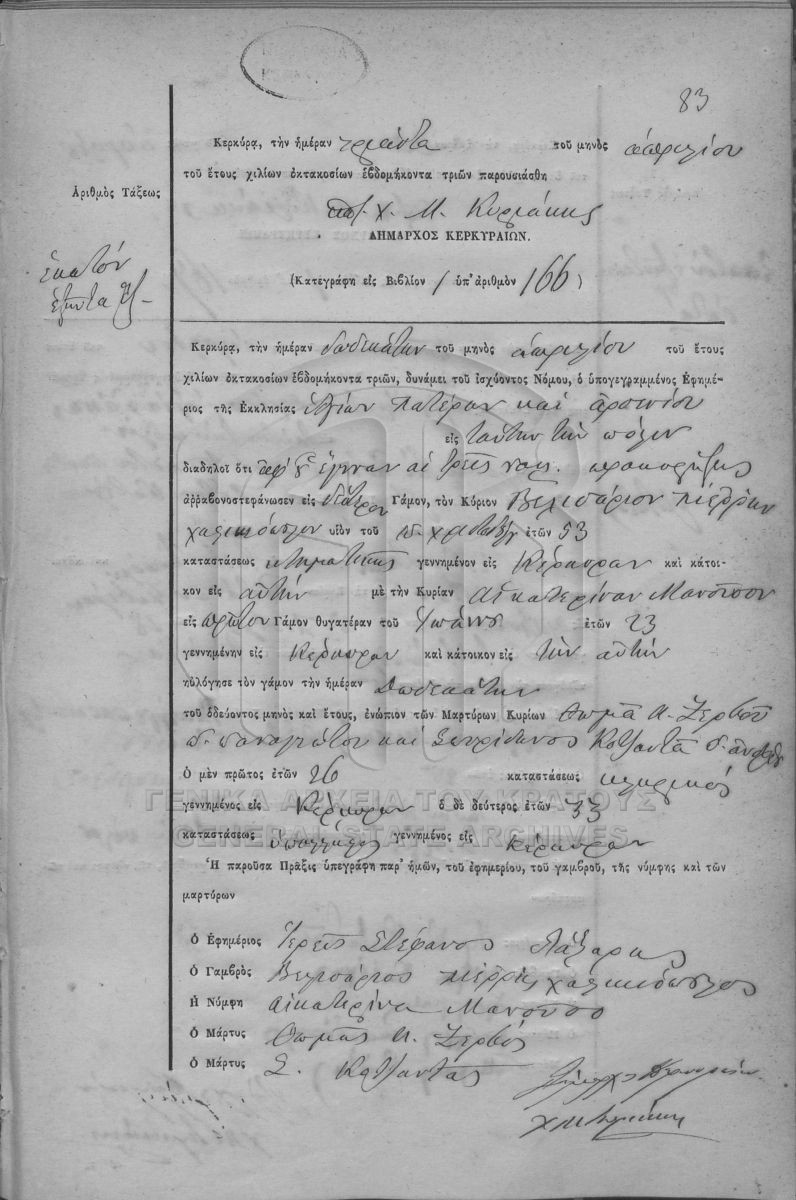 83
Κερκύρᾳ, τὴν ἡμέραν τριάντα τοῦ μηνὸς ἀπριλίου
τοῦ ἔτους χιλίων ὀκτακοσίων ἑβδομήκοντα τριῶν παρουσιάσθη
Χ. Μ. Κυριάκης
ΔΗΜΑΡΧΟΣ ΚΕΡΚΥΡΑΙΩΝ.
Ἀριθμὸς Τάξεως
ἑκατόν
ἑξήντα ἕξ
(Κατεγράφη εἰς Βιβλίον 1 ὑπ' ἀριθμὸν 166)
Κερκύρᾳ, τὴν ἡμέραν δωδεκάτην τοῦ μηνὸς ἀπριλίου τοῦ ἔτους
χιλίων ὀκτακοσίων ἑβδομήκοντα τριῶν, δυνάμει τοῦ ἰσχύοντος Νόμου, ὁ ὑπογεγραμμένος Ἐφημέ-
ριος τῆς Ἐκκλησίας Ἁγίων Πατέρων καὶ Ἀρσενίου
εἰς ταύτην τὴν πόλιν
διαδηλοῖ ὅτι ἀφ' οὗ ἔγιναν αἱ τρεῖς νομ. προκηρύξεις
ἀρραβονοστεφάνωσεν εἰς δεύτερον Γάμον, τὸν Κύριον Βελισάριον Πιέρρην
Χαλικιόπουλον υἱὸν τοῦ ἐτῶν 53
καταστάσεως κτηματίας γεννημένον εἰς Κέρκυραν καὶ κάτοι-
κον εἰς αὐτὴν μὲ τὴν Κυρίαν Αἰκατερίναν Μανοῦσου
εἰς πρῶτον Γάμον θυγατέραν τοῦ Ἰωάννου ἐτῶν 23
γεννημένην εἰς Κέρκυραν καὶ κάτοικον εἰς τὴν αὐτήν
ηὐλόγησε τὸν γάμον τὴν ἡμέραν Δωδεκάτην
τοῦ ὁδεύοντος μηνὸς καὶ ἔτους, ἐνώπιον τῶν Μαρτύρων Κυρίων Θωμᾶ Α. Ζερβοῦ
π. Παναγιώτου καὶ Σπυρίδωνος Κοτζαντᾶ
Ὁ μὲν πρῶτος ἐτῶν 26 καταστάσεως κληρικὸς
γεννημένος εἰς Κέρκυραν ὁ δὲ δεύτερος ἐτῶν 33
καταστάσεως ὑπάλληλος γεννημένος εἰς Κέρκυραν
Ἡ παροῦσα Πρᾶξις ὑπεγράφη παρ' ἡμῶν, τοῦ ἐφημερίου, τοῦ γαμβροῦ, τῆς νύμφης καὶ τῶν
μαρτύρων
Ὁ Ἐφημέριος Ἱερεὺς Στέφανος Λάζαρης
Ὁ Γαμβρὸς Βελισάριος Πιέρρης Χαλικιόπουλος
Ἡ Νύμφη Αἰκατερίνα Μανούσου
Ὁ Μάρτυς Θωμᾶς Α. Ζερβός
Ὁ Μάρτυς Σ. Κοτζαντᾶς
ΓΕΝΙΚΑ ΑΡΧΕΙΑ ΤΟΥ ΚΡΑΤΟΥΣ
GENERAL STATE ARCHIVES